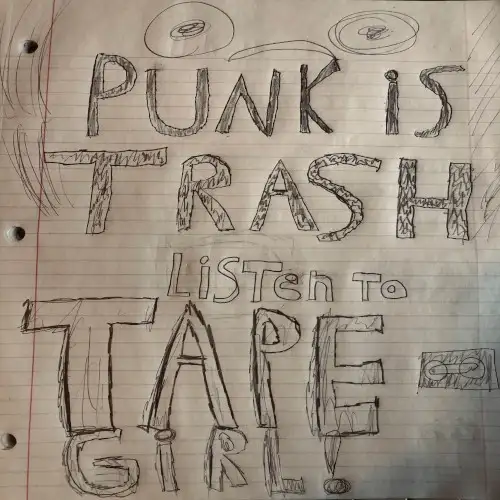 PUNK iS
TRASH
LiSTen TO
TAPE
GiRL!